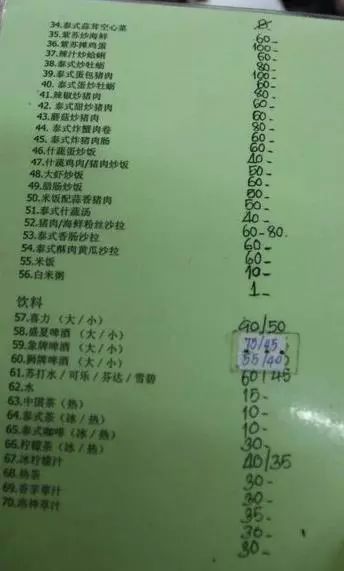 34.泰式蒜茸空心菜
35.紫苏炒海鲜 60-
36.紫苏拌鸡蛋 100-
37.辣汁炒蛤蜊 60-
38.泰式炒牡蛎 80-
39.泰式蛋包猪肉 100-
40. 泰式蛋炒牡蛎 60-
41.辣椒炒猪肉 80-
42. 泰式甜炒猪肉 60-
43.蘑菇炒猪肉 60-
44. 泰式炸蟹肉卷 80-
45. 泰式炸猪肉肠 60-
46.什蔬蛋炒饭 60-
47.什蔬鸡肉/猪肉炒饭 40-
48.大虾炒饭 50-
49.腊肠炒饭 60-
50.米饭配蒜香猪肉 50-
51.泰式什蔬汤 50-
52.猪肉/海鲜粉丝沙拉 40-
53.泰式香肠沙拉 60-80.
54.泰式酥肉黄瓜沙拉 60-
55.米饭 60-
56.白米粥 10-
1-
饮料
57.喜力 (大/小) 90/50
58.盛夏啤酒 (大/小) 70/45
59.象牌啤酒 (大/小) 55/40
60.狮牌啤酒 (大/小) 60/45
61.苏打水/可乐/芬达/雪碧
62.水 15-
63.中国茶(热) 10-
64.泰式茶(冰/热) 10-
65.泰式咖啡(冰/热) 30-
66.柠檬茶(冰/热) 40/35
67.冰柠檬汁 30-
68.热茶 30-
69.香茅草汁 35-
70. 30-
30-